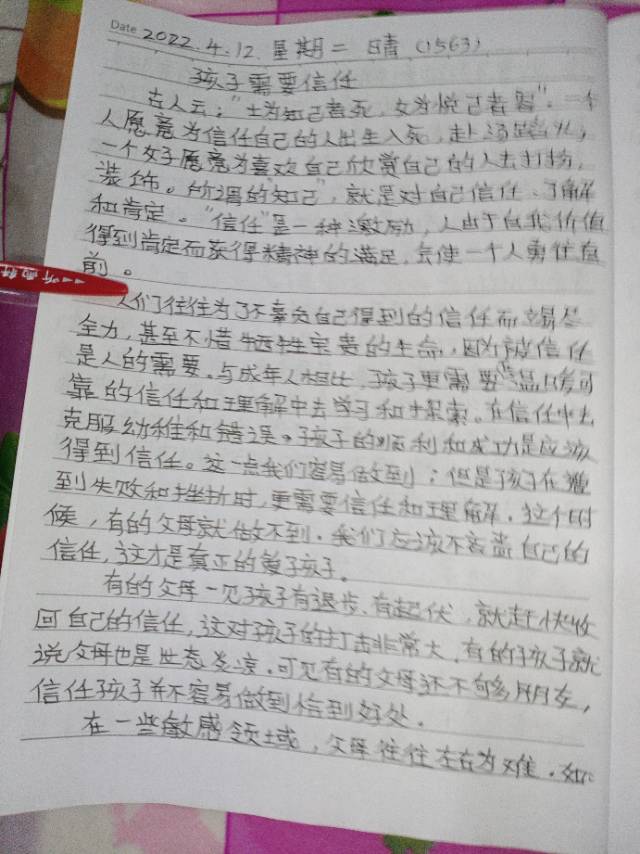 Date 2022.4.12. 星期二 晴 (1563)
孩子需要信任
古人云："士为知己者死，女为悦己者容"。一个
人愿意为信任自己的人出生入死，赴汤蹈火；
一个女子愿意为喜欢自己欣赏自己的人去打扮，
装饰。所谓的知己"，就是对自己信任、了解
和肯定。"信任"是一种激励，人由于自我价值
得到肯定而获得精神的满足，会使一个人勇往直
前。
人们往往为了不辜负自己得到的信任而竭尽
全力，甚至不惜牺牲宝贵的生命，因为被信任
是人的需要。与成年人相比，孩子更需要在温暖可
靠的信任和理解中去学习和探索。在信任中去
克服幼稚和错误。孩子的顺利和成功是应该
得到信任。这一点我们容易做到；但是孩子在遭
到失败和挫折时，更需要信任和理解。这个时
候，有的父母就做不到。我们应该不吝啬自己的
信任，这才是真正的爱子孩子。
有的父母一见孩子有退步、有起伏，就赶快收
回自己的信任，这对孩子的打击非常大。有的孩子就
说父母也是世态炎凉。可见有的父母还不够朋友，
信任孩子并不容易做到恰到好处。
在一些敏感领域，父母往往左右为难。如